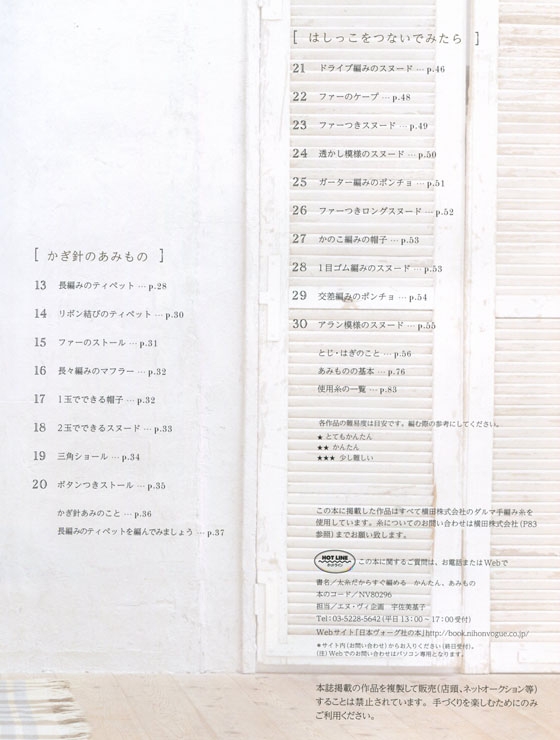 [ かぎ針のあみもの ]
13 長編みのティペット … p.28
14 リボン結びのティペット … p.30
15 ファーのストール … p.31
16 長々編みのマフラー … p.32
17 1玉でできる帽子 … p.32
18 2玉でできるスヌード … p.33
19 三角ショール … p.34
20 ボタンつきストール … p.35
かぎ針あみのこと … p.36
長編みのティペットを編んでみましょう … p.37
[ はしっこをつないでみたら ]
21 ドライブ編みのスヌード … p.46
22 ファーのケープ … p.48
23 ファーつきスヌード … p.49
24 透かし模様のスヌード … p.50
25 ガーター編みのポンチョ … p.51
26 ファーつきロングスヌード … p.52
27 かのこ編みの帽子 … p.53
28 1目ゴム編みのスヌード … p.53
29 交差編みのポンチョ … p.54
30 アラン模様のスヌード … p.55
とじ・はぎのこと … p.56
あみものの基本 … p.76
使用糸の一覧 … p.83
各作品の難易度は目安です。編む際の参考にしてください。
★ とてもかんたん
★★ かんたん
★★★ 少し難しい
この本に掲載した作品はすべて横田株式会社のダルマ手編み糸を
使用しています。糸についてのお問い合わせは横田株式会社(P83
参照)までお願い致します。
HOT LINE
ホットライン
この本に関するご質問は、お電話またはWebで
書名/太糸だからすぐ編める かんたん、あみもの
本のコード/NV80296
担当/エヌ・ヴィ企画 宇佐美基子
Tel:03-5228-5642(平日13:00~17:00受付)
Webサイト「日本ヴォーグ社の本」http://book.nihonvogue.co.jp/
*サイト内(お問い合わせ)からお入りください(終日受付)。
(注)Webでのお問い合わせはパソコン専用となります。
本誌掲載の作品を複製して販売(店頭、ネットオークション等)
することは禁止されています。手づくりを楽しむためにのみ
ご利用ください。